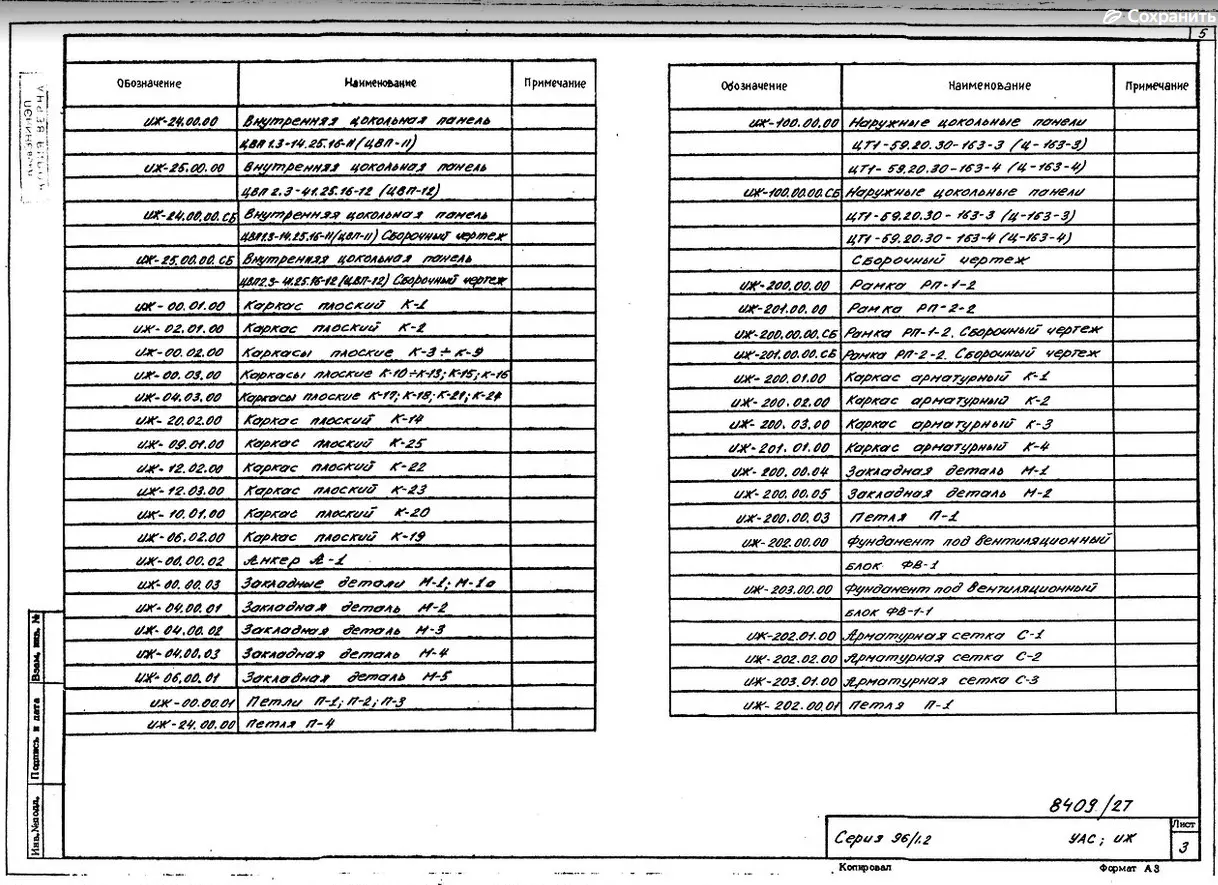 Сохранить
5
Обозначение Наименование Примечание
ИЖ-24.00.00 Внутренняя цокольная панель
ЦВП 1.3-14.25.16-11 (ЦВП-11)
ИЖ-25.00.00 Внутренняя цокольная панель
ЦВП 2.3-41.25.16-12 (ЦВП-12)
ИЖ-24.00.00.СБ Внутренняя цокольная панель
ЦВП1.3-14.25.16-11 (ЦВП-11) Сборочный чертеж
ИЖ-25.00.00.СБ Внутренняя цокольная панель
ЦВП2.3-41.25.16-12 (ЦВП-12) Сборочный чертеж
ИЖ-00.01.00 Каркас плоский К-1
ИЖ-02.01.00 Каркас плоский К-2
ИЖ-00.02.00 Каркасы плоские К-3÷К-9
ИЖ-00.03.00 Каркасы плоские К-10÷К-13; К-15; К-16
ИЖ-04.03.00 Каркасы плоские К-17; К-18; К-21; К-24
ИЖ-20.02.00 Каркас плоский К-14
ИЖ-09.01.00 Каркас плоский К-25
ИЖ-12.02.00 Каркас плоский К-22
ИЖ-12.03.00 Каркас плоский К-23
ИЖ-10.01.00 Каркас плоский К-20
ИЖ-06.02.00 Каркас плоский К-19
ИЖ-00.00.02 Анкер А-1
ИЖ-00.00.03 Закладные детали М-1; М-1а
ИЖ-04.00.01 Закладная деталь М-2
ИЖ-04.00.02 Закладная деталь М-3
ИЖ-04.00.03 Закладная деталь М-4
ИЖ-06.00.01 Закладная деталь М-5
ИЖ-00.00.01 Петли П-1; П-2; П-3
ИЖ-24.00.00 Петля П-4
Обозначение Наименование Примечание
ИЖ-100.00.00 Наружные цокольные панели
ЦТ1-59.20.30-163-3 (Ц-163-3)
ЦТ1-59.20.30-163-4 (Ц-163-4)
ИЖ-100.00.00.СБ Наружные цокольные панели
ЦТ1-59.20.30-163-3 (Ц-163-3)
ЦТ1-59.20.30-163-4 (Ц-163-4)
Сборочный чертеж
ИЖ-200.00.00 Рамка РП-1-2
ИЖ-201.00.00 Рамка РП-2-2
ИЖ-200.00.00.СБ Рамка РП-1-2. Сборочный чертеж
ИЖ-201.00.00.СБ Рамка РП-2-2. Сборочный чертеж
ИЖ-200.01.00 Каркас арматурный К-1
ИЖ-200.02.00 Каркас арматурный К-2
ИЖ-200.03.00 Каркас арматурный К-3
ИЖ-201.01.00 Каркас арматурный К-4
ИЖ-200.00.04 Закладная деталь М-1
ИЖ-200.00.05 Закладная деталь М-2
ИЖ-200.00.03 Петля П-1
ИЖ-202.00.00 Фундамент под вентиляционный
блок ФВ-1
ИЖ-203.00.00 Фундамент под вентиляционный
блок ФВ-1-1
ИЖ-202.01.00 Арматурная сетка С-1
ИЖ-202.02.00 Арматурная сетка С-2
ИЖ-203.01.00 Арматурная сетка С-3
ИЖ-202.00.01 Петля П-1
Взам. инв. №
Подпись и дата
Инв.№подл.
8409/27
Серия 96/1.2 УАС; ИЖ
Лист
3
Копировал Формат А3